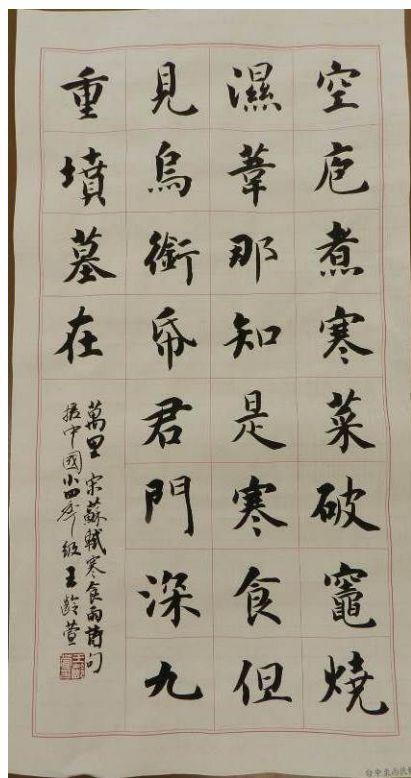 空庖煮寒菜破竈燒
濕葦那知是寒食但
見烏銜帋君門深九
重墳墓在
萬里 宋蘇軾寒食雨詩句
振中國小四年級 王齡萱